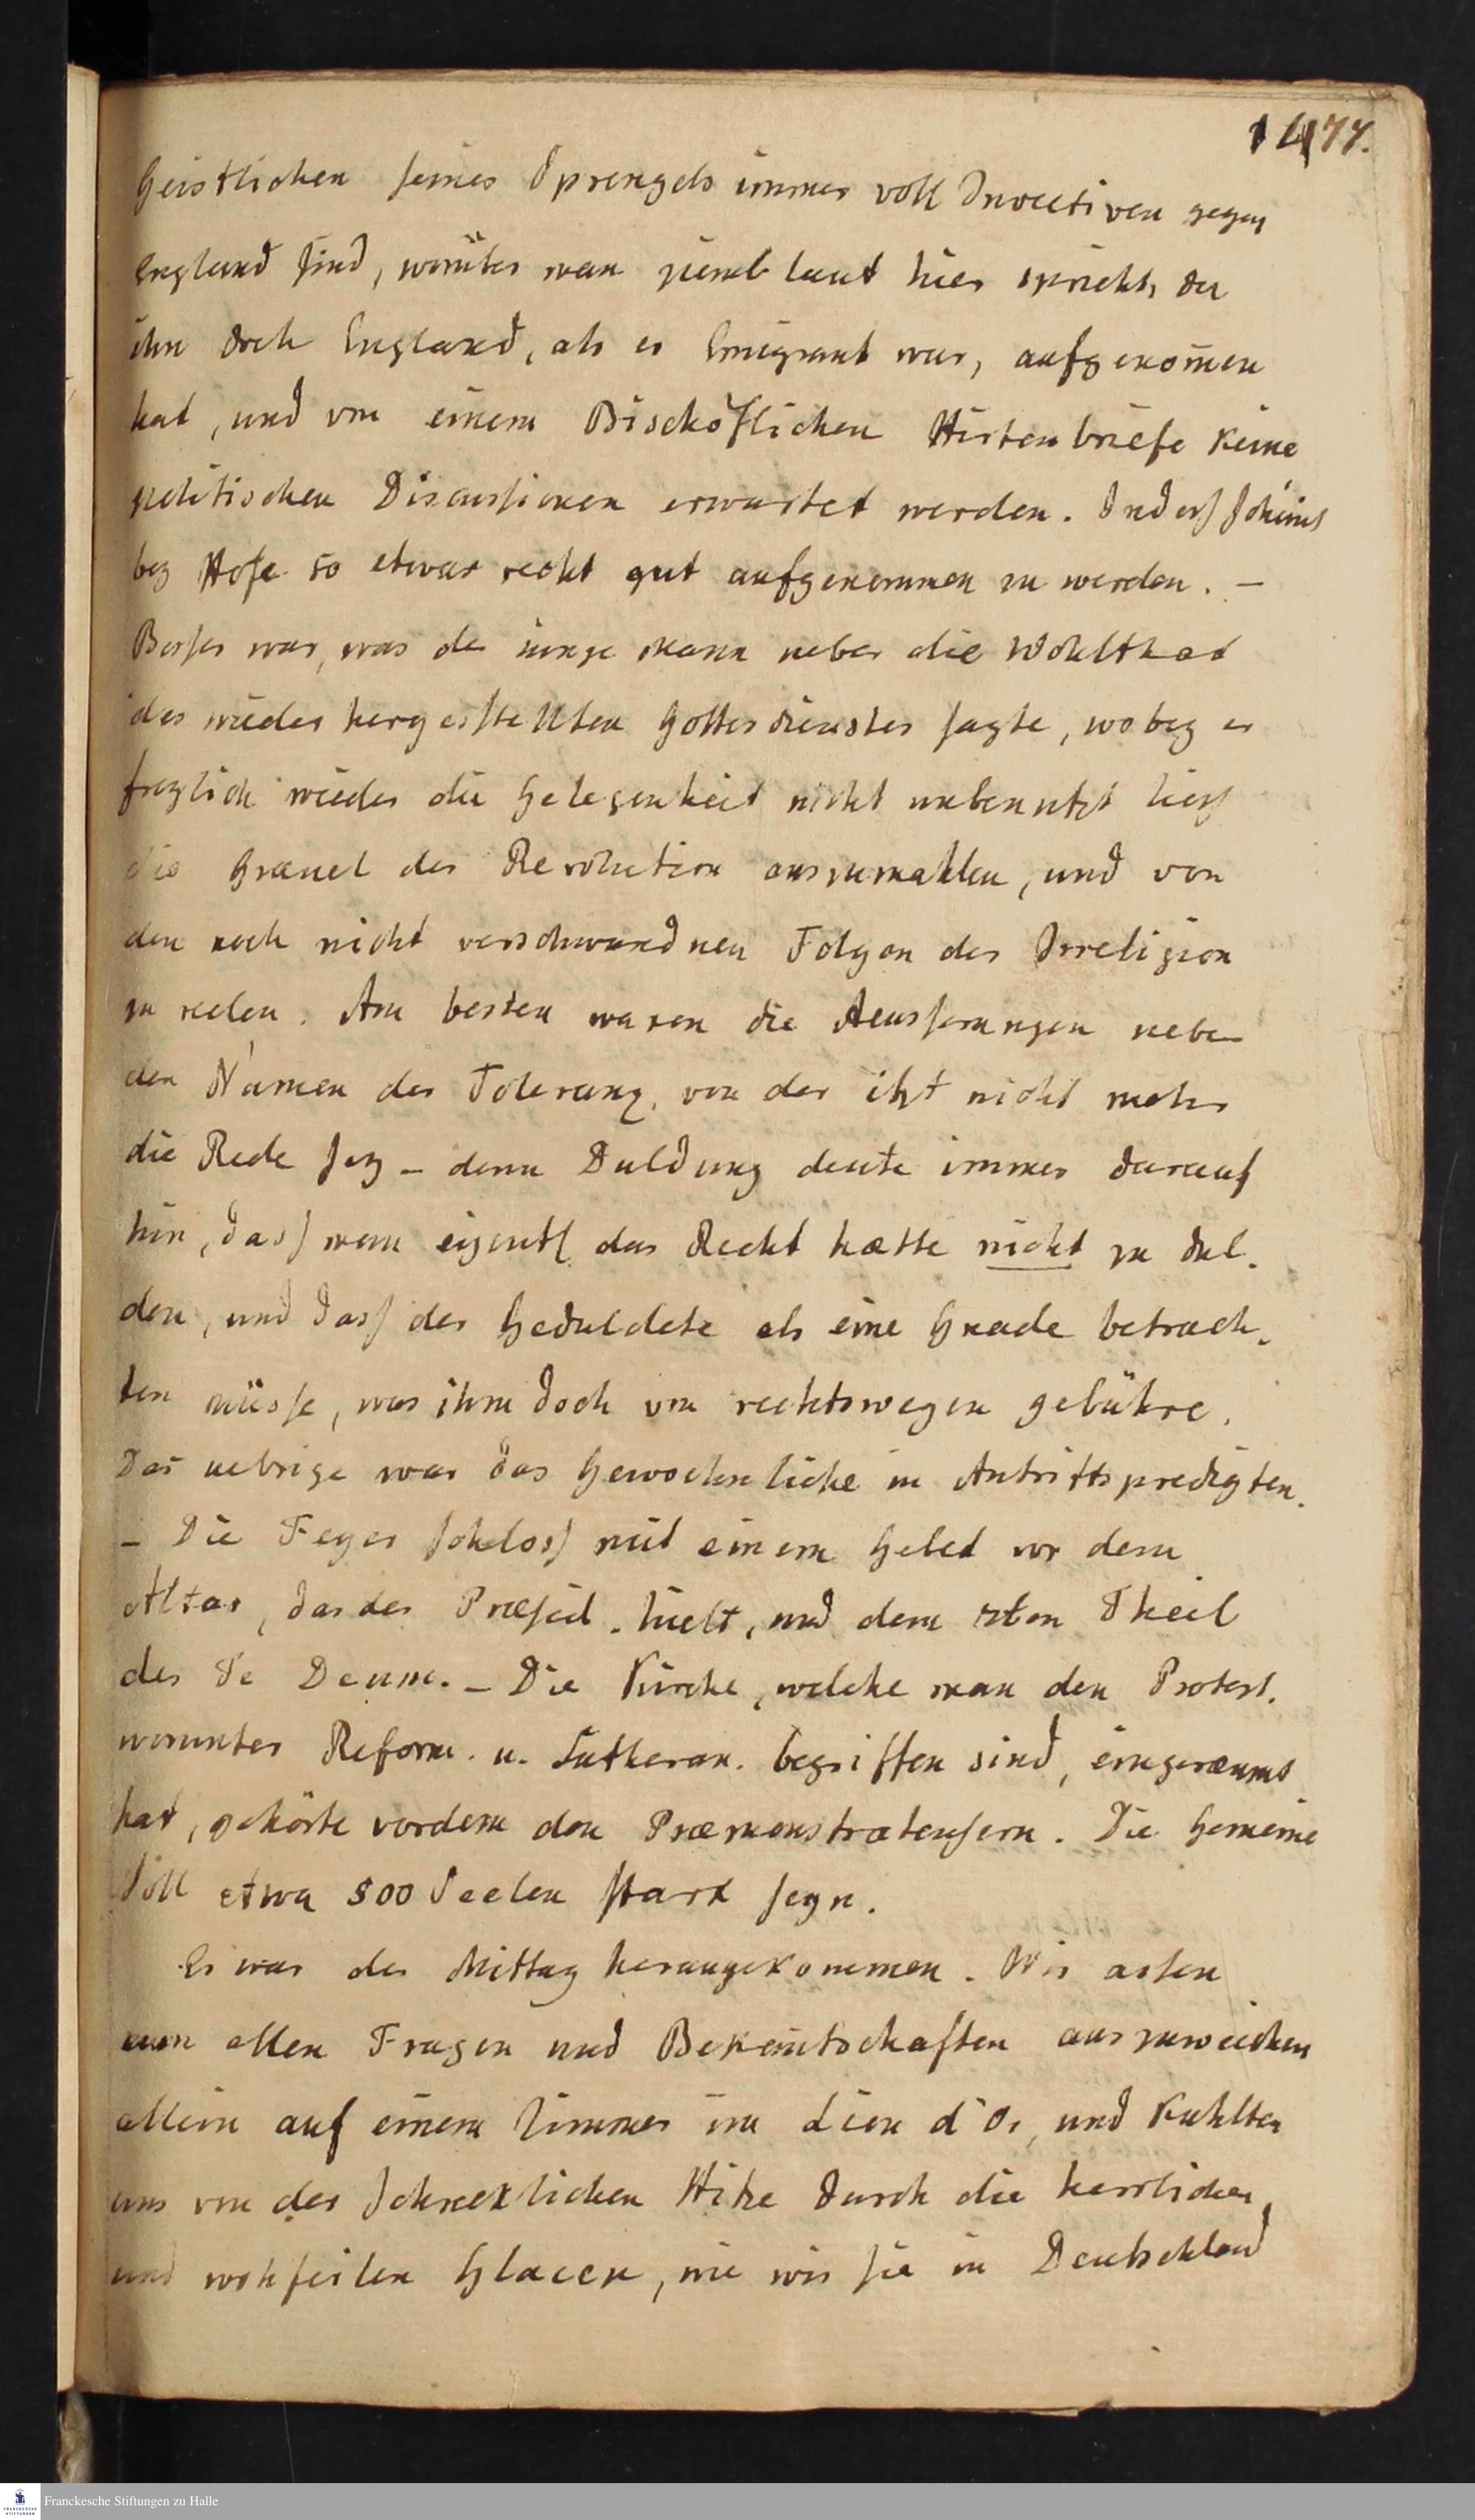 1477.
Geistlichen seines Sprengels immer voll Invectiven gegen
England sind, worüber man ziemlich laut hier spricht, da
ihn doch England, als er Emigrant war, aufgenom̄en
hat, und von einem Bischöflichen Hirtenbriefe keine
politischen Discussionen erwartet werden. Indess scheint
bey Hofe so etwas recht gut aufgenommen zu werden. –
Besser war, was der junge Mann ueber die Wohlthat
des wieder hergestellten Gottesdienstes sagte, wobey er
freylich wieder die Gelegenheit nicht unbenutzt liess
die Græuel der Revolution auszumahlen, und von
den noch nicht verschwundnen Folgen der Irreligion
zu reden. Am besten waren die Aeusserungen ueber
den Namen der Toleranz, von der itzt nicht mehr
die Rede sey – denn Duldung deute immer darauf
hin, dass man eigentl. das Recht hætte nicht zu dul-
den, und dass der Geduldete als eine Gnade betrach-
ten müsse, was ihm doch von rechtswegen gebühre.
Das uebrige war das Gewoehnliche in Antrittspredigten.
– Die Feyer schloss mit einem Gebet vor dem
Altar, das der Præsid. hielt, und dem 2ten Theil
des Te Deum. – Die Kirche, welche man den Protest.
worunter Reform. u. Lutheran. begriffen sind, eingeræumt
hat, gehörte vordem den Præmonstratensern. Die Gemeine
soll etwa 800 Seelen stark seyn.
Es war der Mittag herangekommen. Wir assen
um allen Fragen und Bekan̄tschaften auszuweichen
allein auf einem Zimmer im Lion d'Or, und kuhlten
uns von der schrecklichen Hitze durch die herrlichen
und wohfeilen Glacen, wie wir sie in Deutschland
Franckesche Stiftungen zu Halle